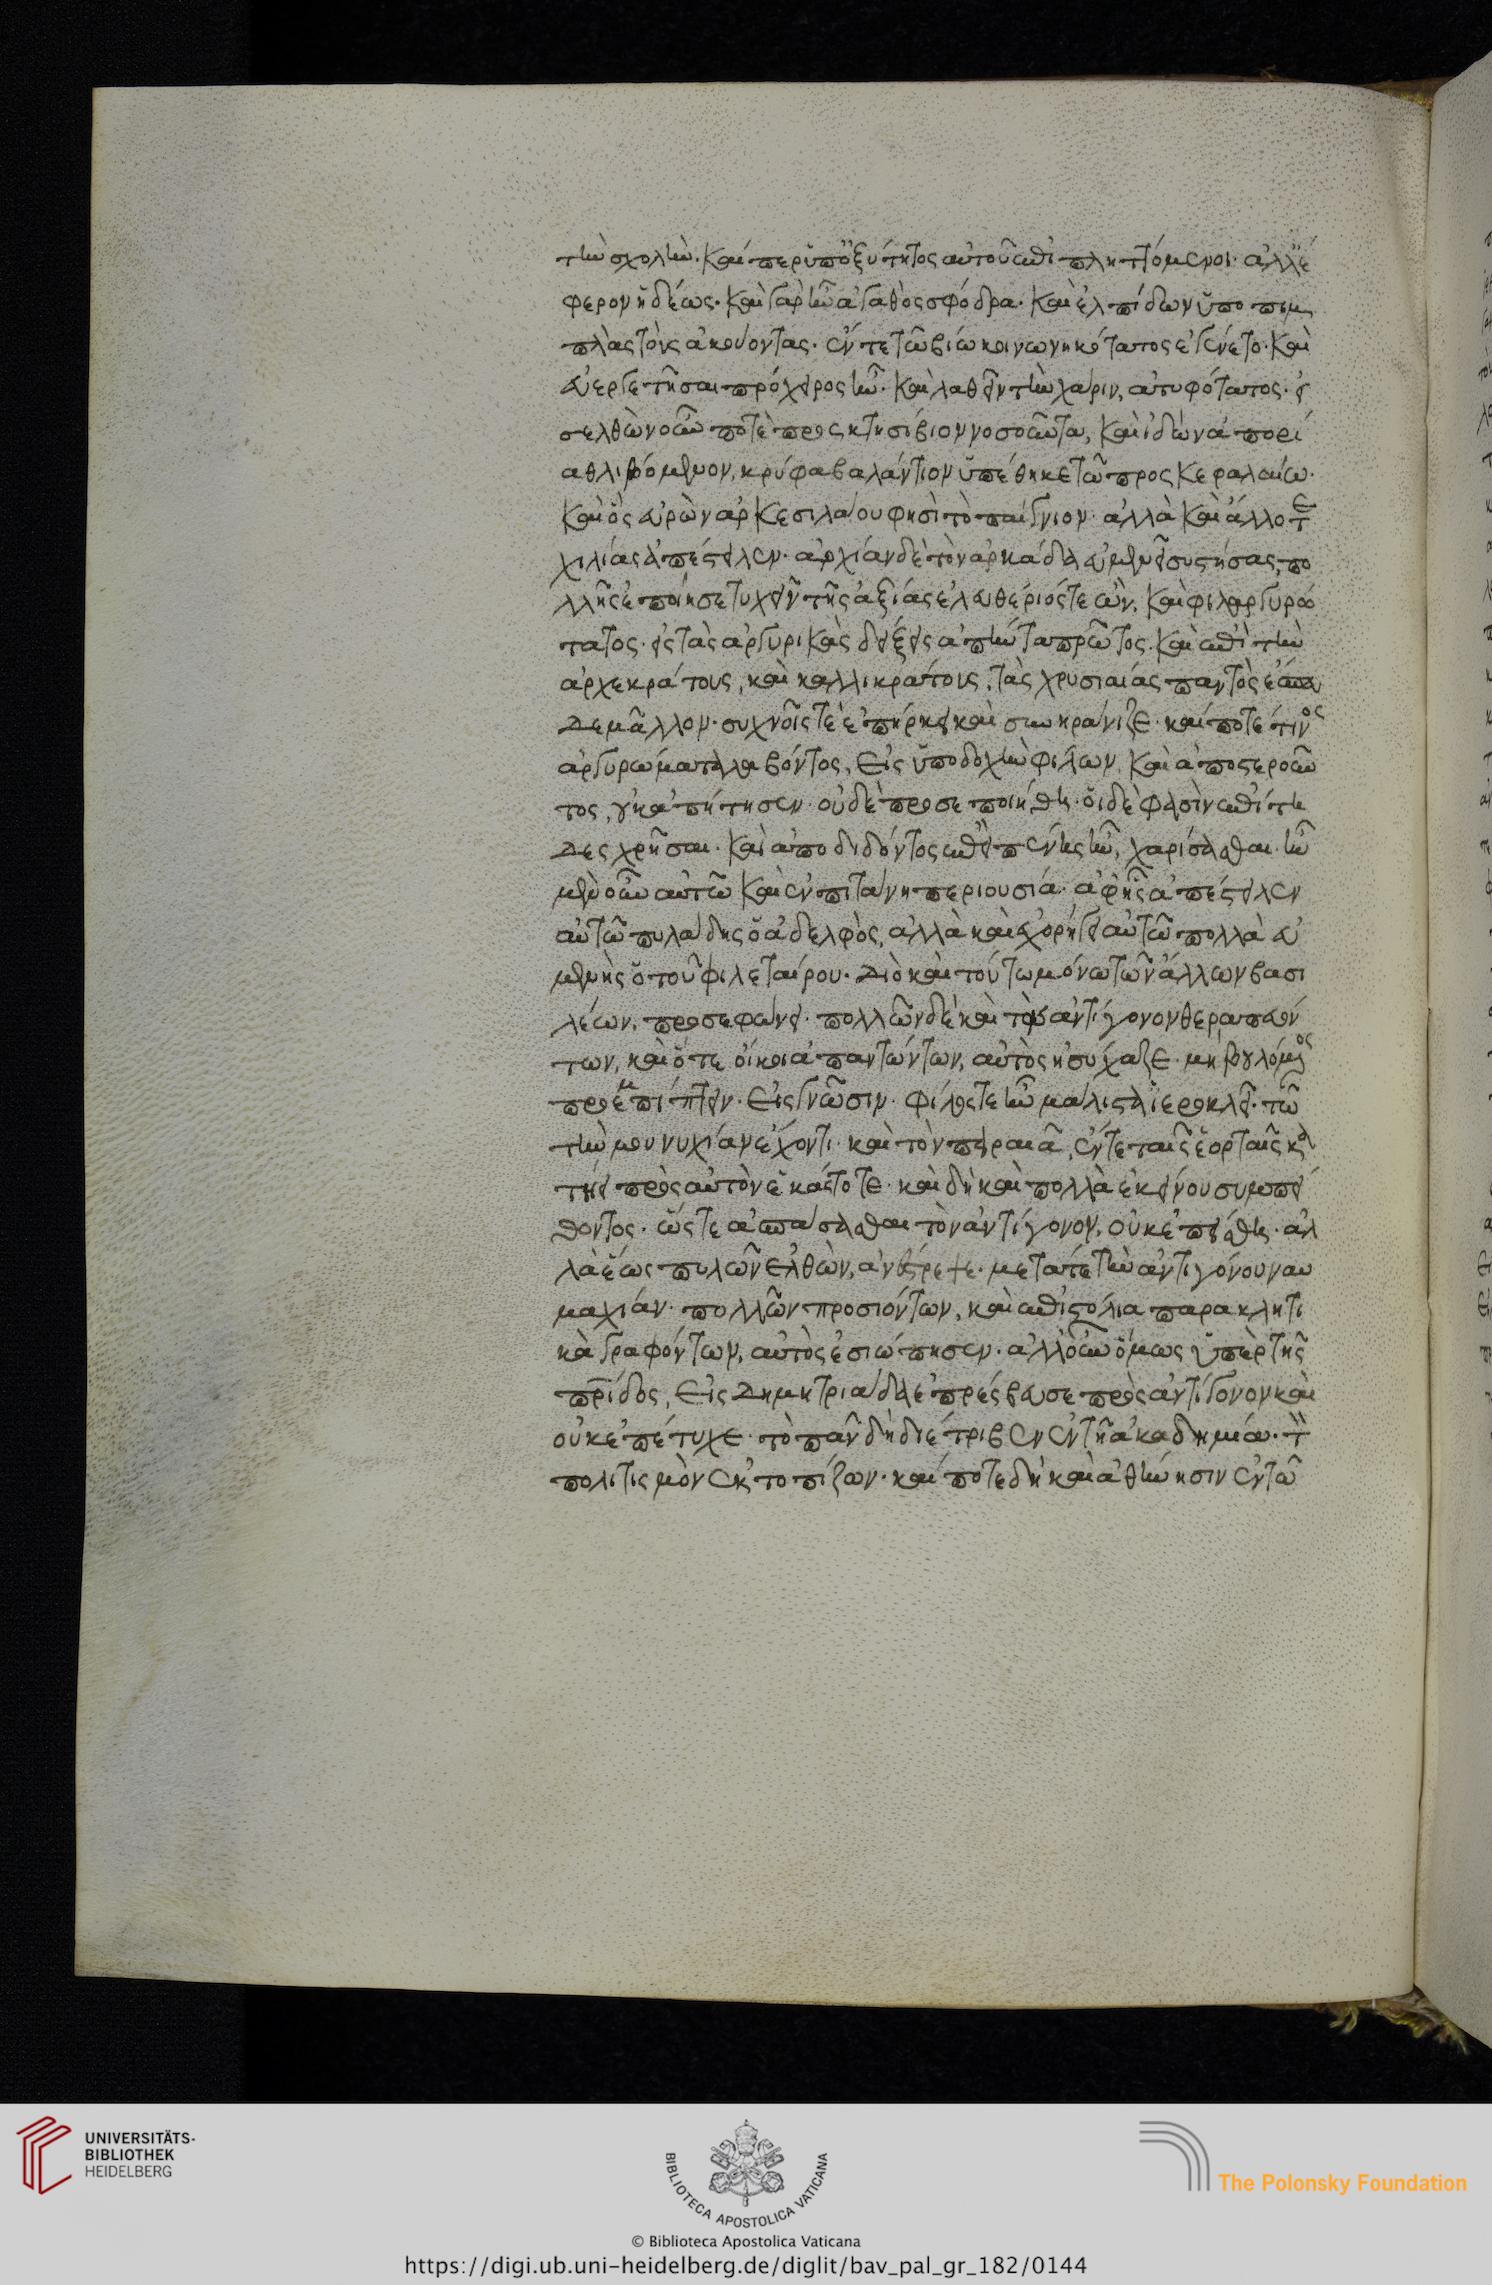 τὴν σχολὴν. καί περ ὑπὸ ὀξύτητος αὐτοῦ ἐπιπληττόμενοι. ἀλλ' ἔ
φερον ἡδέως. καὶ γὰρ ἦν ἀγαθὸς σφόδρα. καὶ ἐλπίδων ὑποπιμ
πλὰς τοὺς ἀκούοντας. ἔν τε τῶ βίω κοινωνικότατος ἐγένετο. καὶ
εὐεργετῆσαι πρόχειρος ἦν. καὶ λαθεῖν τὴν χάριν, ἀτυφότατος. εἰ
σελθὼν οὖν ποτὲ πρὸς κτησίβιον νοσοῦντα, καὶ ἰδὼν ἀπορί
α θλιβόμενον, κρύφα βαλάντιον ὑπέθηκε τῶ προσκεφαλαίω.
καὶ ὃς εὑρὼν ἀρκεσιλάου φησὶ τὸ παίγνιον. ἀλλὰ καὶ ἄλλοτε
χιλίας ἀπέστειλεν. ἀρχίαν δὲ τὸν ἀρκάδα εὐμένει συστήσας, πο
λλῆς ἐποίησε τυχεῖν τῆς ἀξίας ἐλευθέριός τε ὢν, καὶ φιλαργυρώ
τατος. εἰς τὰς ἀργυρικὰς δείξεις ἀπήντα πρῶτος. καὶ ἐπὶ τὴν
ἀρχεκράτους, καὶ καλλικράτους, τὰς χρυσιαίας παντὸς ἔσπευ
δε μᾶλλον. συχνοῖς τε ἐπήρκει καὶ συνηράνιζε. καί ποτέ τινος
ἀργυρώματα λαβόντος, εἰς ὑποδοχὴν φίλων, καὶ ἀποστεροῦν
τος, οὐκ ἀπήτησεν. οὐδὲ προσεποιήθη. οἱ δὲ φασὶν ἐπίτη
δες χρῆσαι. καὶ ἀποδιδόντος ἐπεὶ πένης ἦν, χαρίσασθαι. ἦν
μὲν οὖν αὐτῶ καὶ ἐν πιτάνη περιουσία. ἀφ' ἧς ἀπέστειλεν
αὐτῶ πυλάδης ὁ ἀδελφὸς, ἀλλὰ καὶ ἐχορήγει αὐτῶ πολλὰ εὐ
μένης ὁ τοῦ φιλεταίρου. διὸ καὶ τούτω μόνω τῶν ἄλλων βασι
λέων, προσεφώνει. πολλῶν δὲ καὶ τὸν ἀντίγονον θεραπευόν
των, καὶ ὅτε οἵκοι ἀπαντώντων, αὐτὸς ἡσύχαζε. μὴ βουλόμενος
προεμπίπτειν. εἰς γνῶσιν. φίλος τε ἦν μάλιστα ἱεροκλεῖ. τῶ
τὴν μουνυχίαν ἔχοντι. καὶ τὸν πειραιᾶ, ἔν τε ταῖς ἑορταῖς κα
τήει πρὸς αὐτὸν ἑκάστοτε. καὶ δὴ καὶ πολλὰ ἐκείνου συμπεί
θοντος. ὥστε ἀσπάσασθαι τὸν ἀντίγονον, οὐκ ἐπείσθη. ἀλ
λὰ ἕως πυλῶν ἐλθὼν, ἀνέστρεψε. μετά τε τὴν ἀντιγόνου ναυ
μαχίαν. πολλῶν προσιόντων, καὶ ἐπιστόλια παρακλητι
κὰ γραφόντων, αὐτὸς ἐσιώπησεν. ἀλλ' οὖν ὅμως ὑπὲρ τῆς
πρίδος, εἰς δημητριάδα ἐπρέσβευσε πρὸς ἀντίγονον καὶ
οὐκ ἐπέτυχε. τὸ πᾶν δὴ διέτριβεν ἐν τῆ ἀκαδημία. τὸν
πολιτισμὸν ἐκτοπίζων. καί ποτε δὴ καὶ ἀθήνησιν ἐν τῶ
UNIVERSITÄTS-
BIBLIOTHEK
HEIDELBERG
BIBLIOTECA APOSTOLICA VATICANA
The Polonsky Foundation
© Biblioteca Apostolica Vaticana
https://digi.ub.uni-heidelberg.de/diglit/bav_pal_gr_182/0144